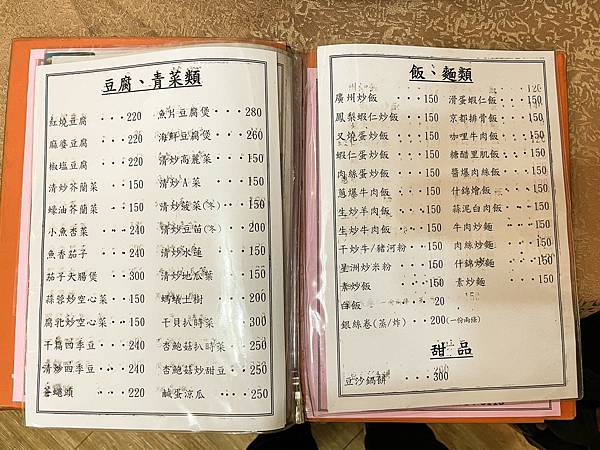 豆腐、青菜類
紅燒豆腐 ... 220
麻婆豆腐 ... 240
椒塩豆腐 ... 240
清炒芥蘭菜 ... 150
蠔油芥蘭菜 ... 150
小魚杏菜 ... 240
魚香茄子 ... 240
茄子大腸煲 ... 300
蒜蓉炒空心菜 ... 150
腐乳炒空心菜 ... 150
干扁四季豆 ... 240
清炒四季豆 ... 240
蒼蠅頭 ... 220
魚片豆腐煲 ... 280
海鮮豆腐煲 ... 260
清炒高麗菜 ... 150
清炒A菜 ... 150
清炒菠菜(冬) ... 150
清炒豆苗(冬) ... 200
清炒水蓮 ... 150
清炒地瓜葉 ... 150
螞蟻上樹 ... 200
干貝扒時菜 ... 300
杏鮑菇扒時菜 ... 250
杏鮑菇炒甜豆 ... 250
鹹蛋涼瓜 ... 250
飯、麵類
廣州炒飯 ... 150
鳳梨蝦仁炒飯 ... 150
叉燒蛋炒飯 ... 150
蝦仁蛋炒飯 ... 150
肉絲蛋炒飯 ... 150
蔥爆牛肉飯 ... 150
生炒羊肉飯 ... 150
生炒牛肉飯 ... 150
干炒牛/豬河粉 ... 150
星洲炒米粉 ... 150
素炒飯 ... 150
白飯 ... 20
銀絲卷(蒸/炸) ... 200(一份兩條)
滑蛋蝦仁飯 ... 150
京都排骨飯 ... 150
咖哩牛肉飯 ... 150
糖醋里肌飯 ... 150
醬爆肉絲飯 ... 150
什錦燴飯 ... 150
蒜泥白肉飯 ... 150
牛肉炒麵 ... 150
肉絲炒麵 ... 150
什錦炒麵 ... 150
素炒麵 ... 150
甜品
豆沙鍋餅 ... 300